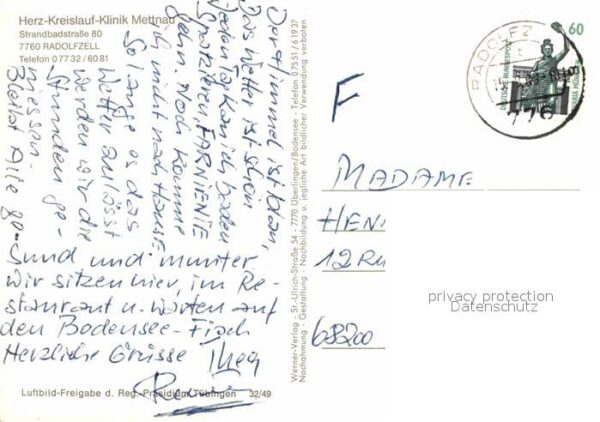 Herz-Kreislauf-Klinik Mettnau
Strandbadstraße 80
7760 RADOLFZELL
Telefon 07732/6081
Der Himmel ist blau,
Das Wetter ist schön
Jeden Tag kan ich baden
Spatzieren, FARNIENTE
sehn. Noch komme
ich nicht nach Hause
So lange es das
Wetter zulässt
werden wir die
Stunden ge-
niessen.
Bleibt Alle ge-
sund und munter
Wir sitzen hier, im Re-
staurant u. warten auf
den Bodensee-Fisch
Herzliche Grüsse
Luftbild-Freigabe d. Reg.-Präsidium Tübingen 32/49
Werner-Verlag - St.-Ulrich-Straße 54 - 7770 Überlingen/Bodensee - Telefon 07551/61937
Nachahmung - Gestaltung - Nachbildung u. jegliche Art bildlicher Verwendung verboten
F
60
DEUTSCHE BUNDESPOST
BAVARIA MÜNCHEN
RADOLFZ
776
MADAME
HEN
12 RU
68200
privacy protection
Datenschutz